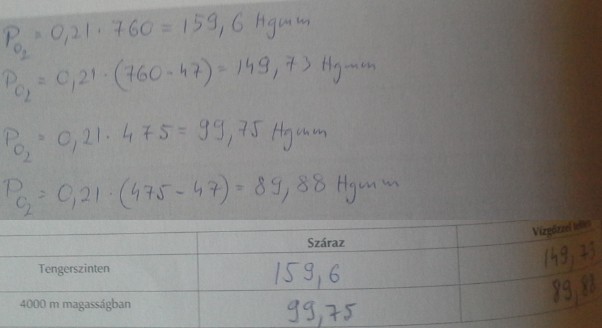 P_O2 = 0,21 · 760 = 159,6 Hgmm
P_O2 = 0,21 · (760 - 47) = 149,73 Hgmm
P_O2 = 0,21 · 475 = 99,75 Hgmm
P_O2 = 0,21 · (475 - 47) = 89,88 Hgmm
Száraz Vízgőzzel
Tengerszinten 159,6 149,73
4000 m magasságban 99,75 89,88